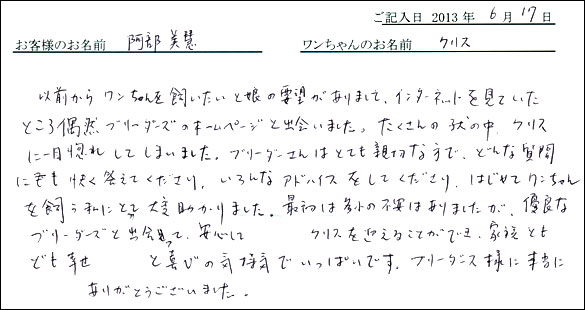 ご記入日 2013 年 6 月 17 日
お客様のお名前 阿部 美慧 ワンちゃんのお名前 クリス
以前から ワンちゃんを飼いたいと娘の要望がありまして、インターネットを見ていた
ところ偶然 ブリーダーズのホームページと出会いました。たくさんの子犬の中、クリス
に一目惚れしてしまいました。ブリーダーさんはとても親切な方で、どんな質問
にも 快く答えてくださり、いろんなアドバイスをしてくださり、はじめてワンちゃん
を飼う私にとって大変助かりました。最初は多少の不安はありましたが、優良な
ブリーダーズと出会って、安心して クリスを迎えることができ、家族とも
ども幸せ と喜びの気持気でいっぱいです。ブリーダーズ様に本当に
ありがとうございました。